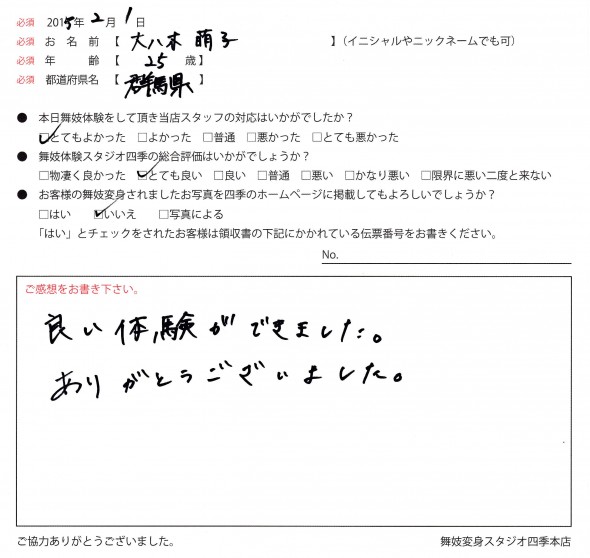 必須 2015年2月1日
必須 お名前【大八木 萌子】(イニシャルやニックネームでも可)
必須 年齢【25歳】
必須 都道府県名【群馬県】
● 本日舞妓体験をして頂き当店スタッフの対応はいかがでしたか?
☑とてもよかった □よかった □普通 □悪かった □とても悪かった
● 舞妓体験スタジオ四季の総合評価はいかがでしょうか?
□物凄く良かった ☑とても良い □良い □普通 □悪い □かなり悪い □限界に悪い二度と来ない
● お客様の舞妓変身されましたお写真を四季のホームページに掲載してもよろしいでしょうか?
□はい ☑いいえ □写真による
「はい」とチェックをされたお客様は領収書の下記にかかれている伝票番号をお書きください。
No.
ご感想をお書き下さい。
良い体験ができました。
ありがとうございました。
ご協力ありがとうございました。 舞妓変身スタジオ四季本店